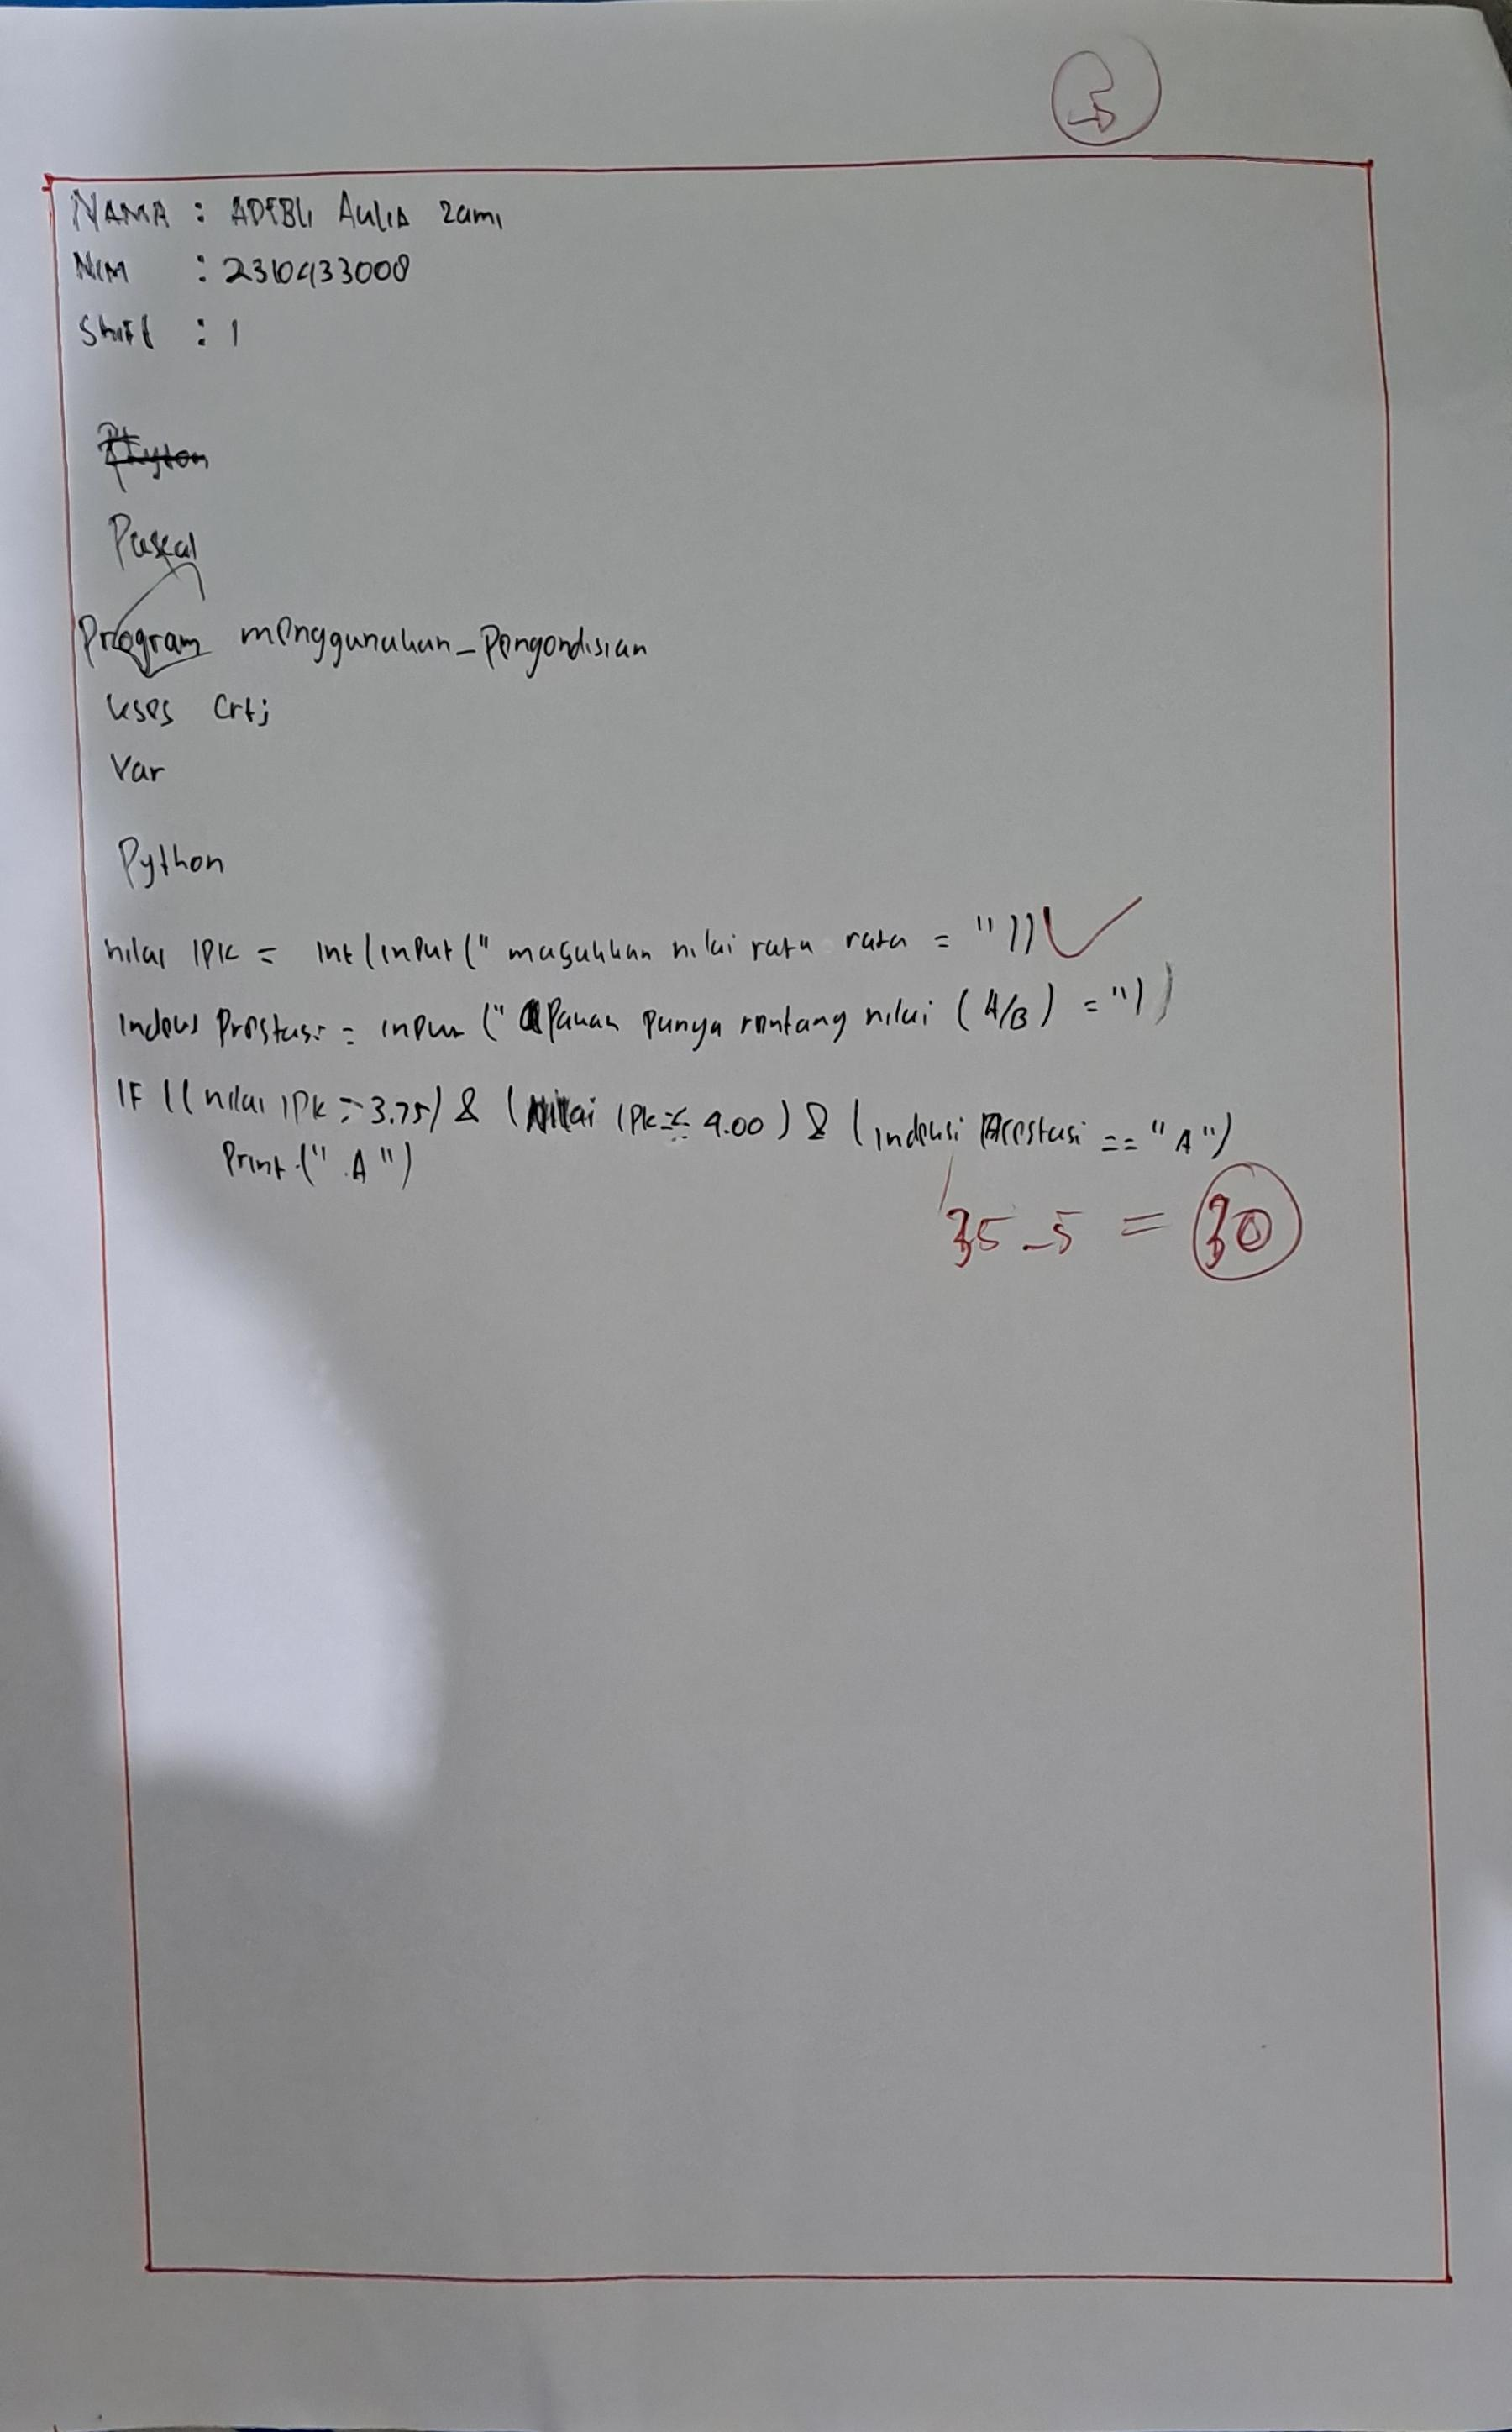 3
NAMA : ADIBLI AULIA Zami
NIM : 2310433008
Shift : 1
Pascal
Program menggunakan_Pengondisian
uses Crt;
Var
Python
nilai IPK = int(input("masukkan nilai rata rata = "))
Indeks Prestasi = input ("Apakah Punya rentang nilai (A/B) = ")
IF ((nilai IPK => 3.75) & (Nilai IPK =< 4.00) & (indeksi Prestasi == "A")
Print ("A")
35-5 = 30